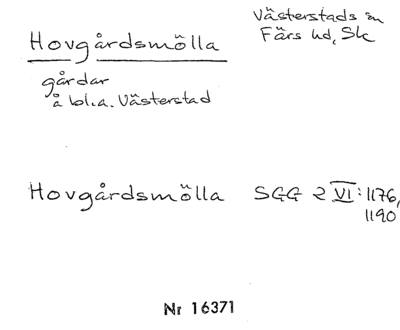 Hovgårdsmölla
Västerstads sn
Färs hd, Sk
gårdar
å bl.a. Västerstad
Hovgårdsmölla SGG 2 VI: 1176,
1190
Nr 16371